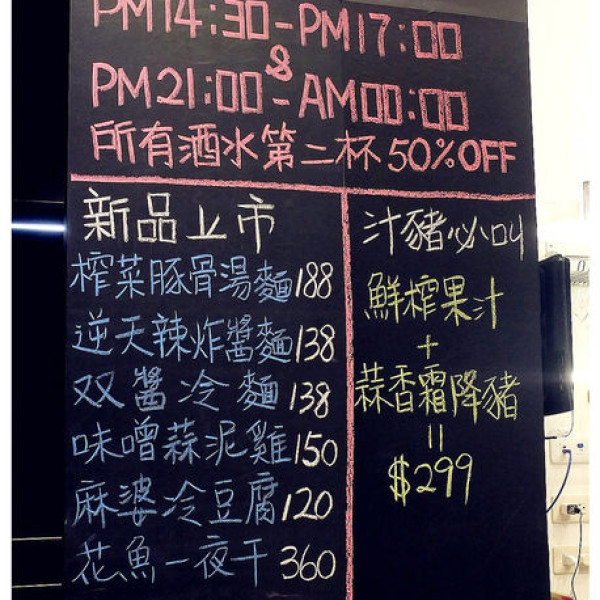 PM14:30-PM17:00
&
PM21:00-AM00:00
所有酒水第二杯50%OFF
新品上市
榨菜豚骨湯麵188
逆天辣炸醬麵138
双醬冷麵138
味噌蒜泥雞150
麻婆冷豆腐120
花魚一夜干360
汁豬必叫
鮮榨果汁
+
蒜香霜降豬
=
$299